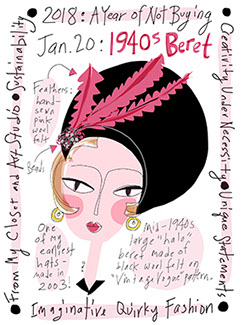 2018: A Year of Not Buying
Jan. 20: 1940s Beret
Feathers:
hand-
sewn
pink
wool
felt
Beads
One
of my
earliest
hats-
made in
2003!
Mid-1940s
large "halo"
beret made of
black wool felt on
"Vintage Vogue" pattern.
Imaginative Quirky Fashion
From My Closet and Art Studio • Sustainability
Creativity Under Necessity • Unique Statements